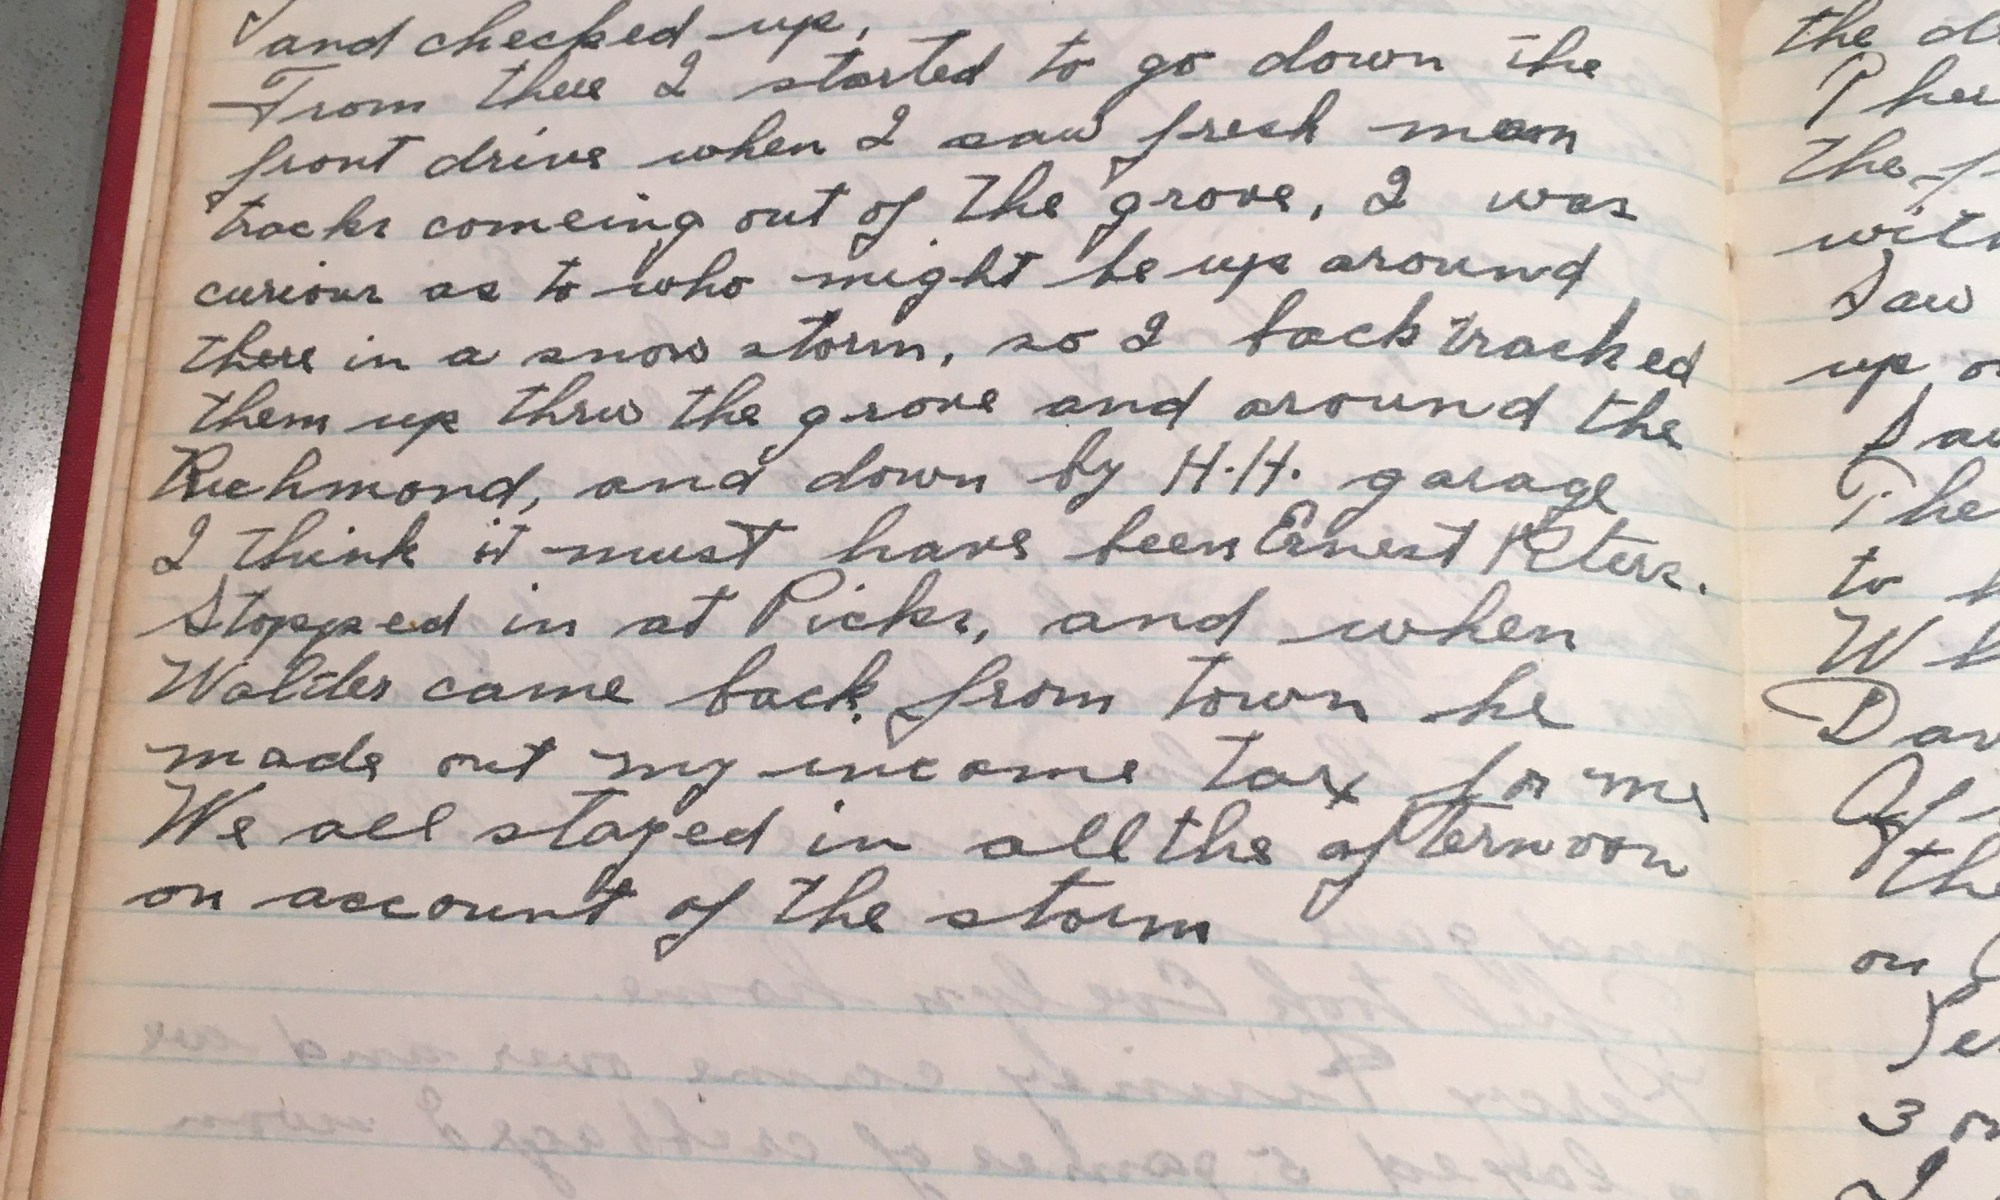 and checked up,
From there I started to go down the
front drive when I saw fresh man
tracks comeing out of the grove, I was
curious as to who might be up around
there in a snow storm, so I back tracked
them up thru the grove and around the
Richmond, and down by H.H. garage
I think it must have been Ernest Peters.
Stopped in at Picks, and when
Walter came back from town he
made out my income tax for me
We all stayed in all the afternoon
on account of the storm
the
the
Saw
up
The
to
on
3